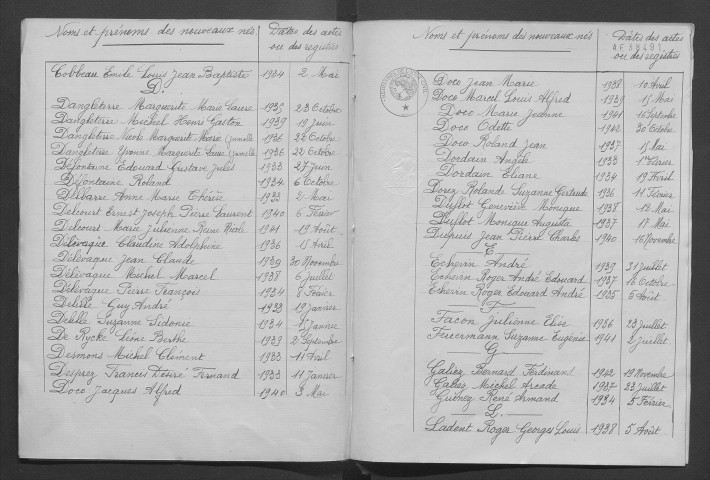 Noms et prénoms des nouveaux nés Dates des actes
ou des registres
Cobbeau Emile Louis Jean Baptiste 1934 2 Mai
D.
Dangleterre Marguerite Marie Laure 1935 23 Octobre
Dangleterre Michel Henri Gaston 1939 19 Juin
Dangleterre Marguerite Marie (jumelle) 1936 22 Octobre
Dangleterre Yvonne Marguerite Laure (jumelle) 1936 22 Octobre
Défontaine Edouard Gustave Jules 1933 27 Juin
Défontaine Roland 1934 6 Octobre
Delbarre Anne Marie Thérèse 1933 2 Mai
Delcourt Ernest Joseph Pierre Laurent 1940 6 Février
Delcourt Marie Julienne 1941 19 Août
Délévaque Claudine Adolphine 1936 15 Avril
Délévaque Jean Claude 1939 30 Novembre
Délévaque Michel Marcel 1938 6 Juillet
Délévaque Pierre François 1934 8 Février
Delille Guy André 1933 19 Janvier
Delille Suzanne Sidonie 1934 Janvier
De Rycke Léone Berthe 1939 2 Septembre
Desmons Michel Clément 1933 11 Avril
Desprez Francis Désiré Fernand 1933 11 Janvier
Doco Jacques Alfred 1940 3 Mai
Noms et prénoms des nouveaux nés Dates des actes
ou des registres
Doco Jean Marie 1938 10 Avril
Doco Marcel Louis Alfred 1939 15 Mai
Doco Marie Jeanne 1941 16 Septembre
Doco Odette 1942 30 Octobre
Doco Roland Jean 1937 15 Mai
Dordain Angèle 1933 1er Février
Dordain Eliane 1934 19 Avril
Dorez Rolande Suzanne Gertrude 1936 11 Février
Duflot Geneviève Monique 1938 12 Mai
Duflot Monique Augusta 1937 17 Mai
Dupuis Jean Pierre Charles 1940 16 Novembre
E
Echevin André 1939 31 Juillet
Echevin Roger André Edouard 1937 16 Octobre
Echevin Roger Edouard André 1935 5 Août
F
Facon Julienne Elise 1936 23 Juillet
Suzanne Eugénie 1941 2 Juillet
G
Galiez Bernard Ferdinand 1942 19 Novembre
Galiez Michel Arcade 1937 23 Juillet
René Armand 1934 5 Février
L.
Ladent Roger Georges Louis 1938 5 Août